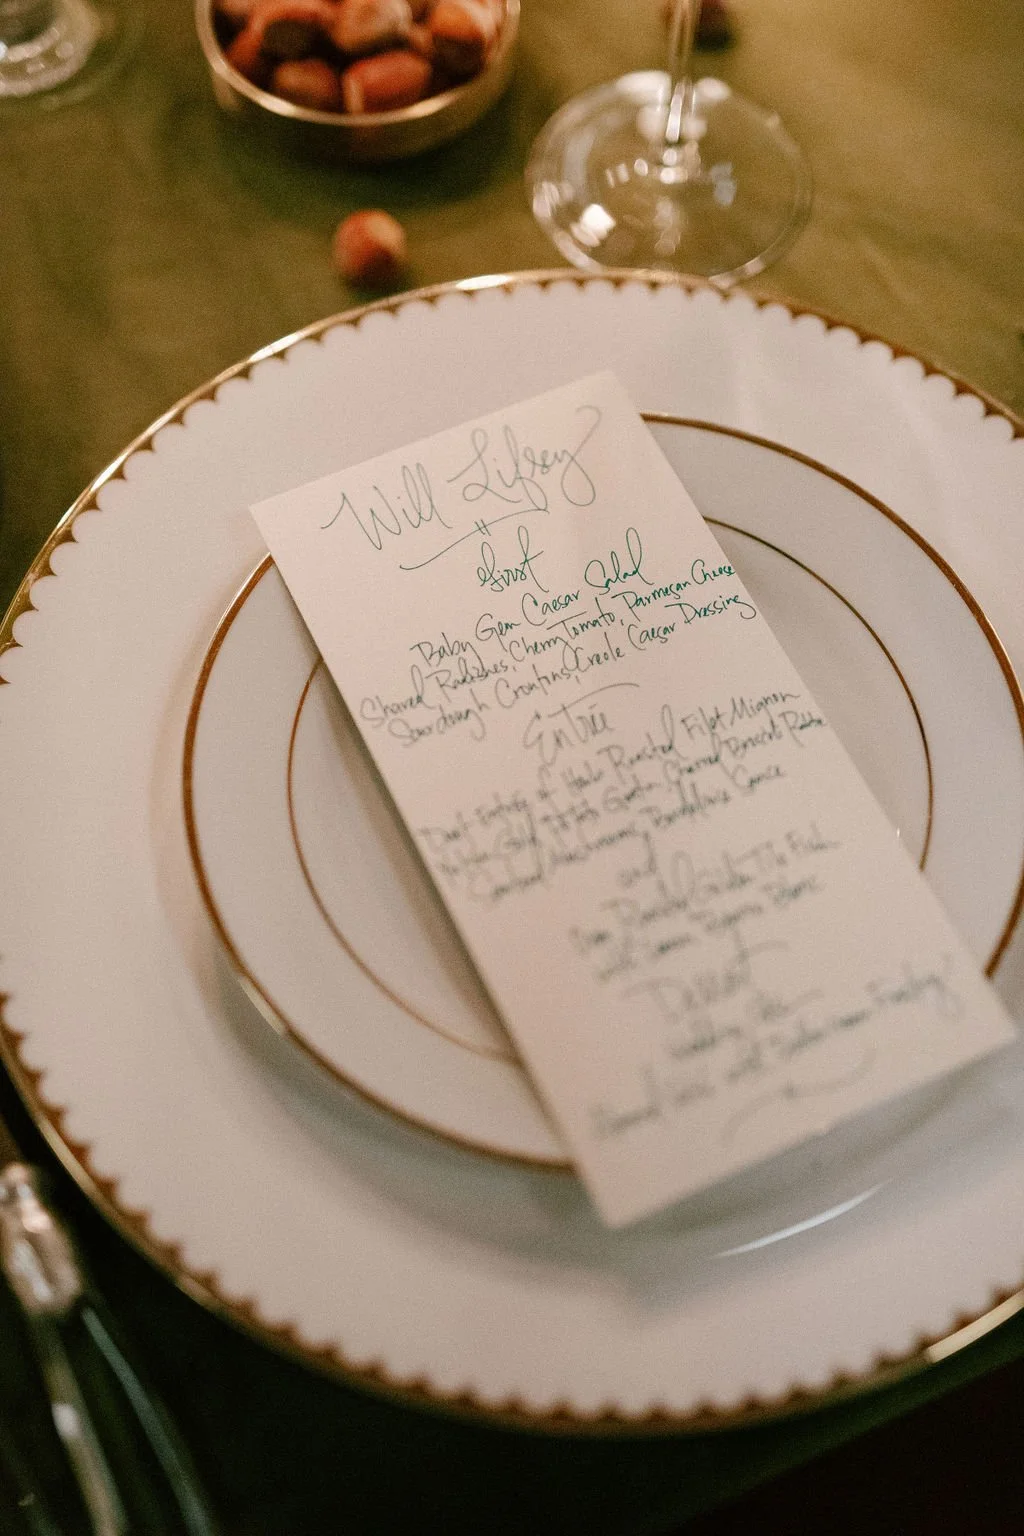 Will Lifsey
first
Baby Gem Caesar Salad
Shaved Radishes, Cherry Tomato, Parmesan Cheese
Sourdough Croutons, Creole Caesar Dressing
Entrée
Duet Entrée of Herb Roasted Filet Mignon
Yukon Gold Potato Gratin, Charred
Mushrooms, Bordelaise Sauce
and
Pan Roasted Golden Tile Fish
with Lemon Beurre Blanc
Dessert
Wedding Cake